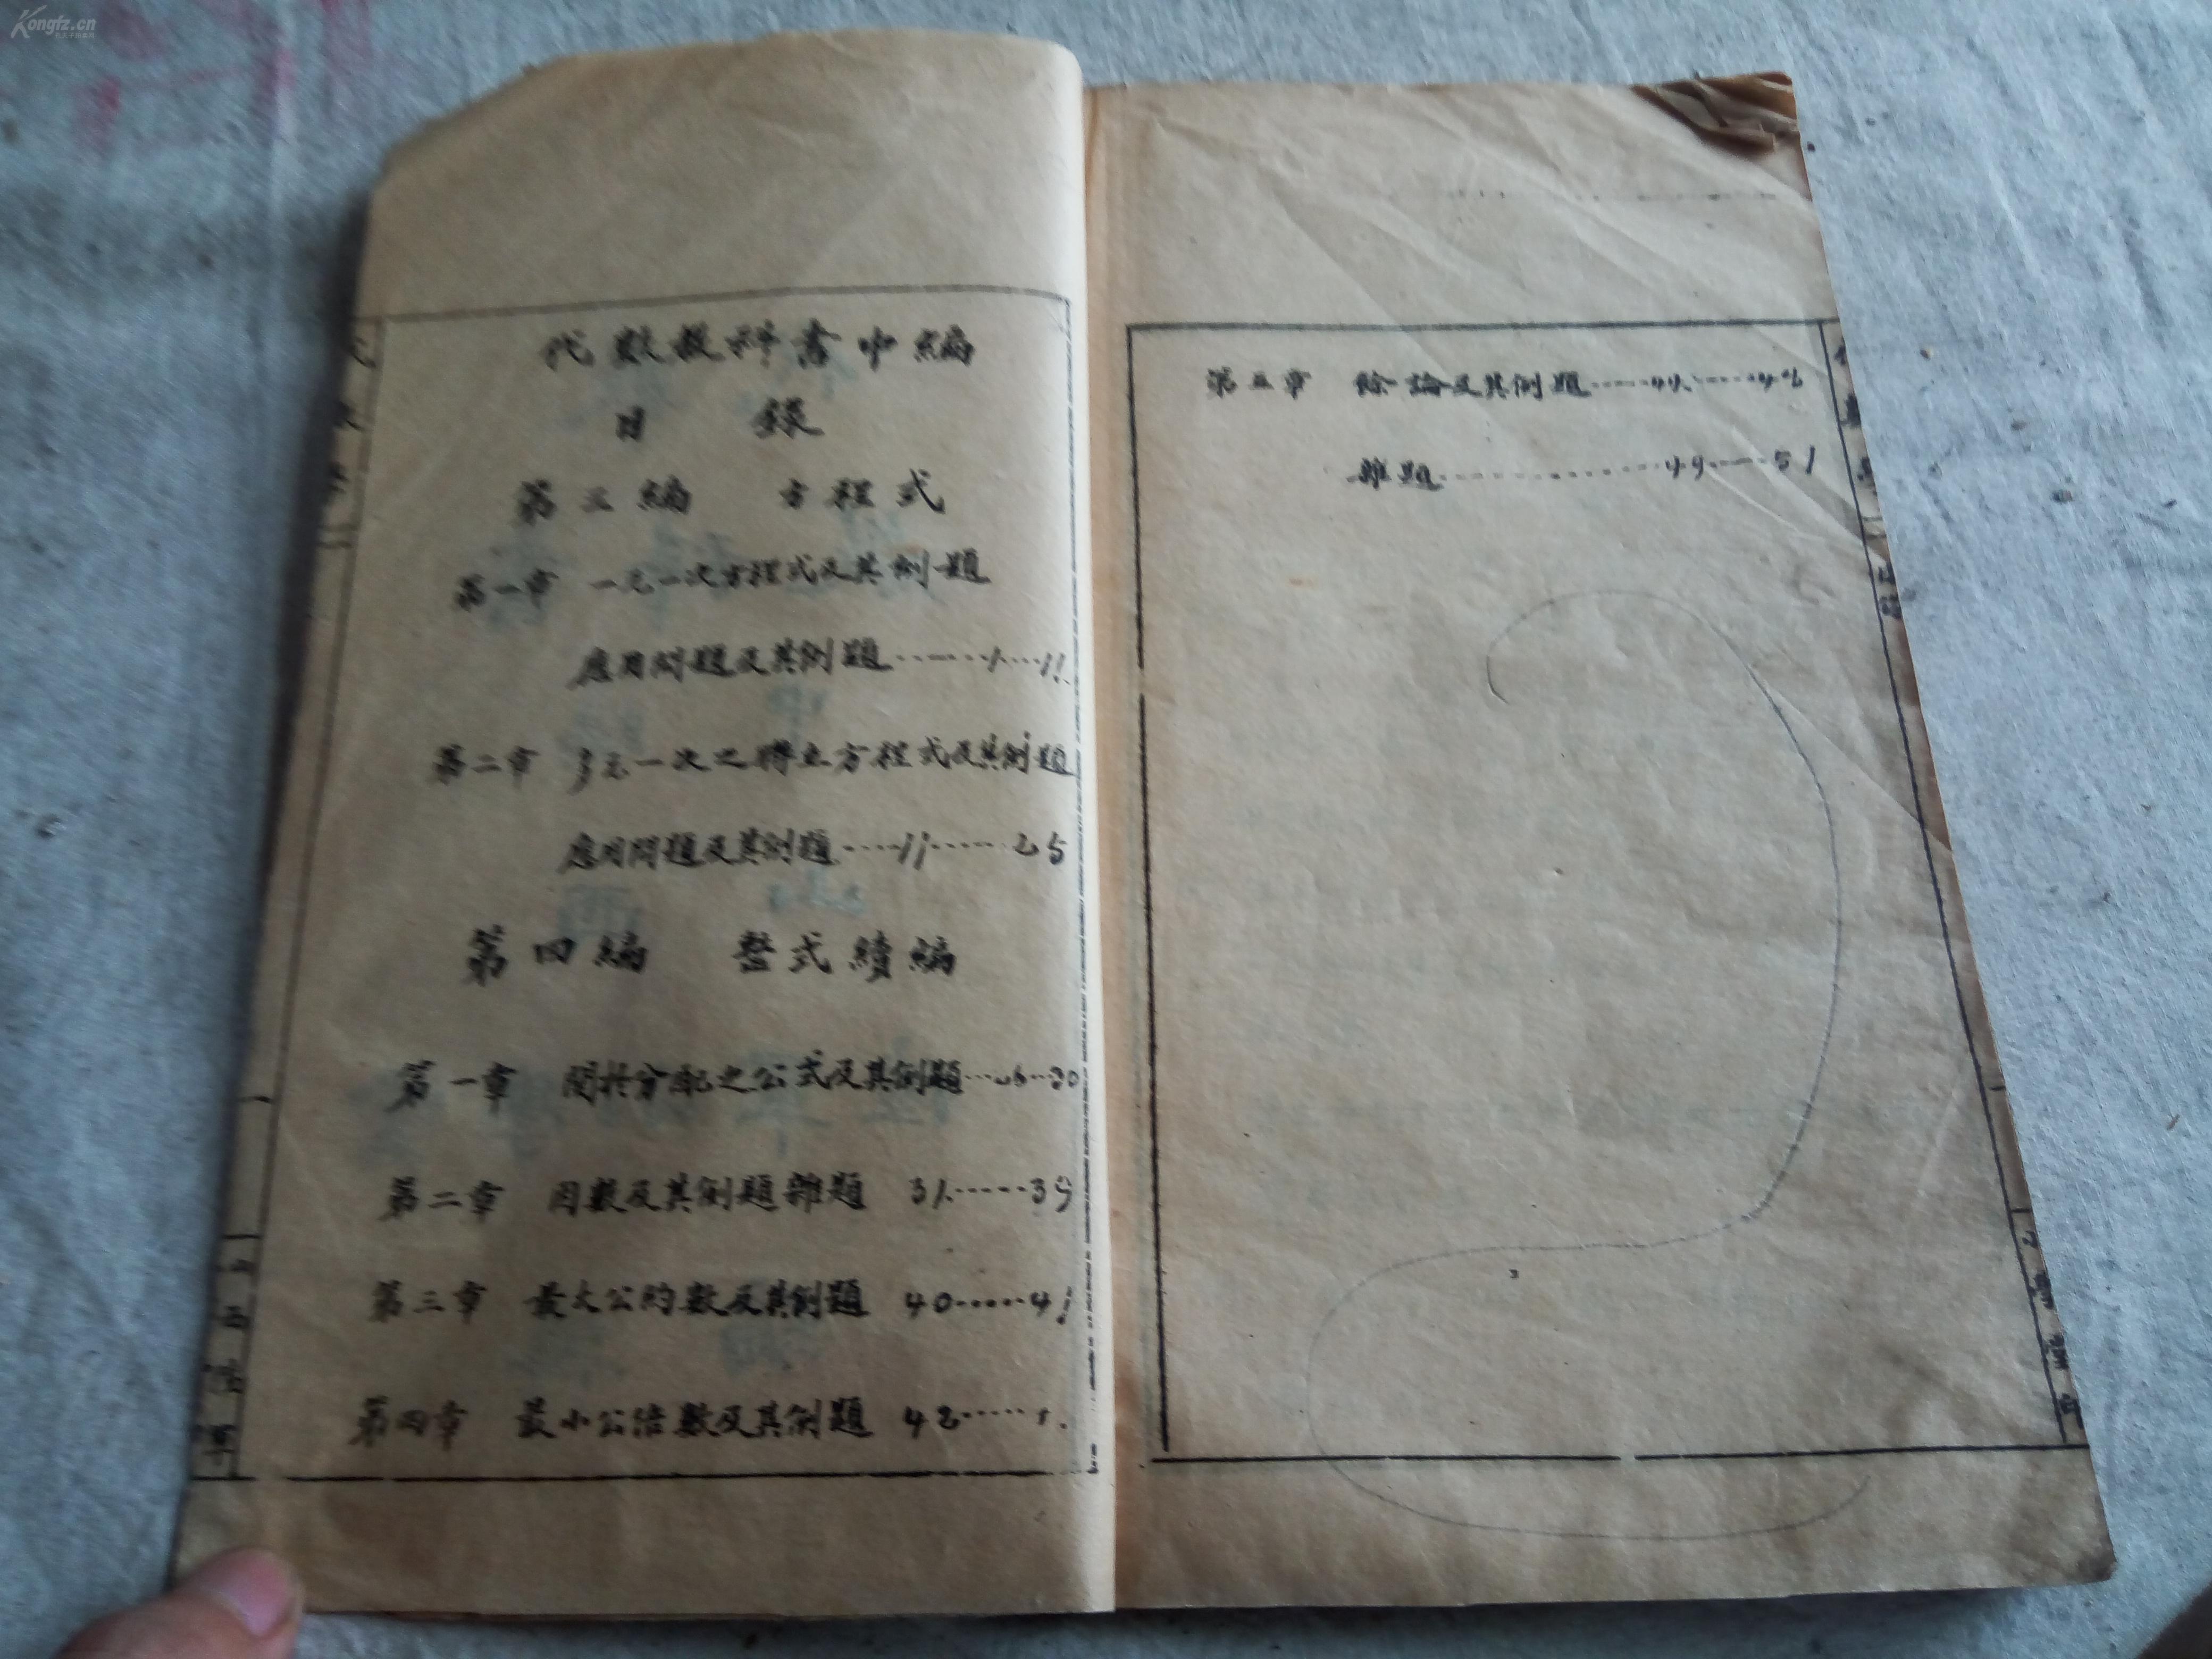 Kongfz.cn
代數教科書中編
目 錄
第三編 方程式
第一章 一元一次方程式及其例題
應用問題及其例題……1…11
第二章 多元一次之聯立方程式及其例題
應用問題及其例題……11……25
第四編 整式續編
第一章 關於分配之公式及其例題…26…30
第二章 因數及其例題雜題 31……39
第三章 最大公約數及其例題 40……41
第四章 最小公倍數及其例題 42……
第五章 餘論及其例題
雜題……49……51